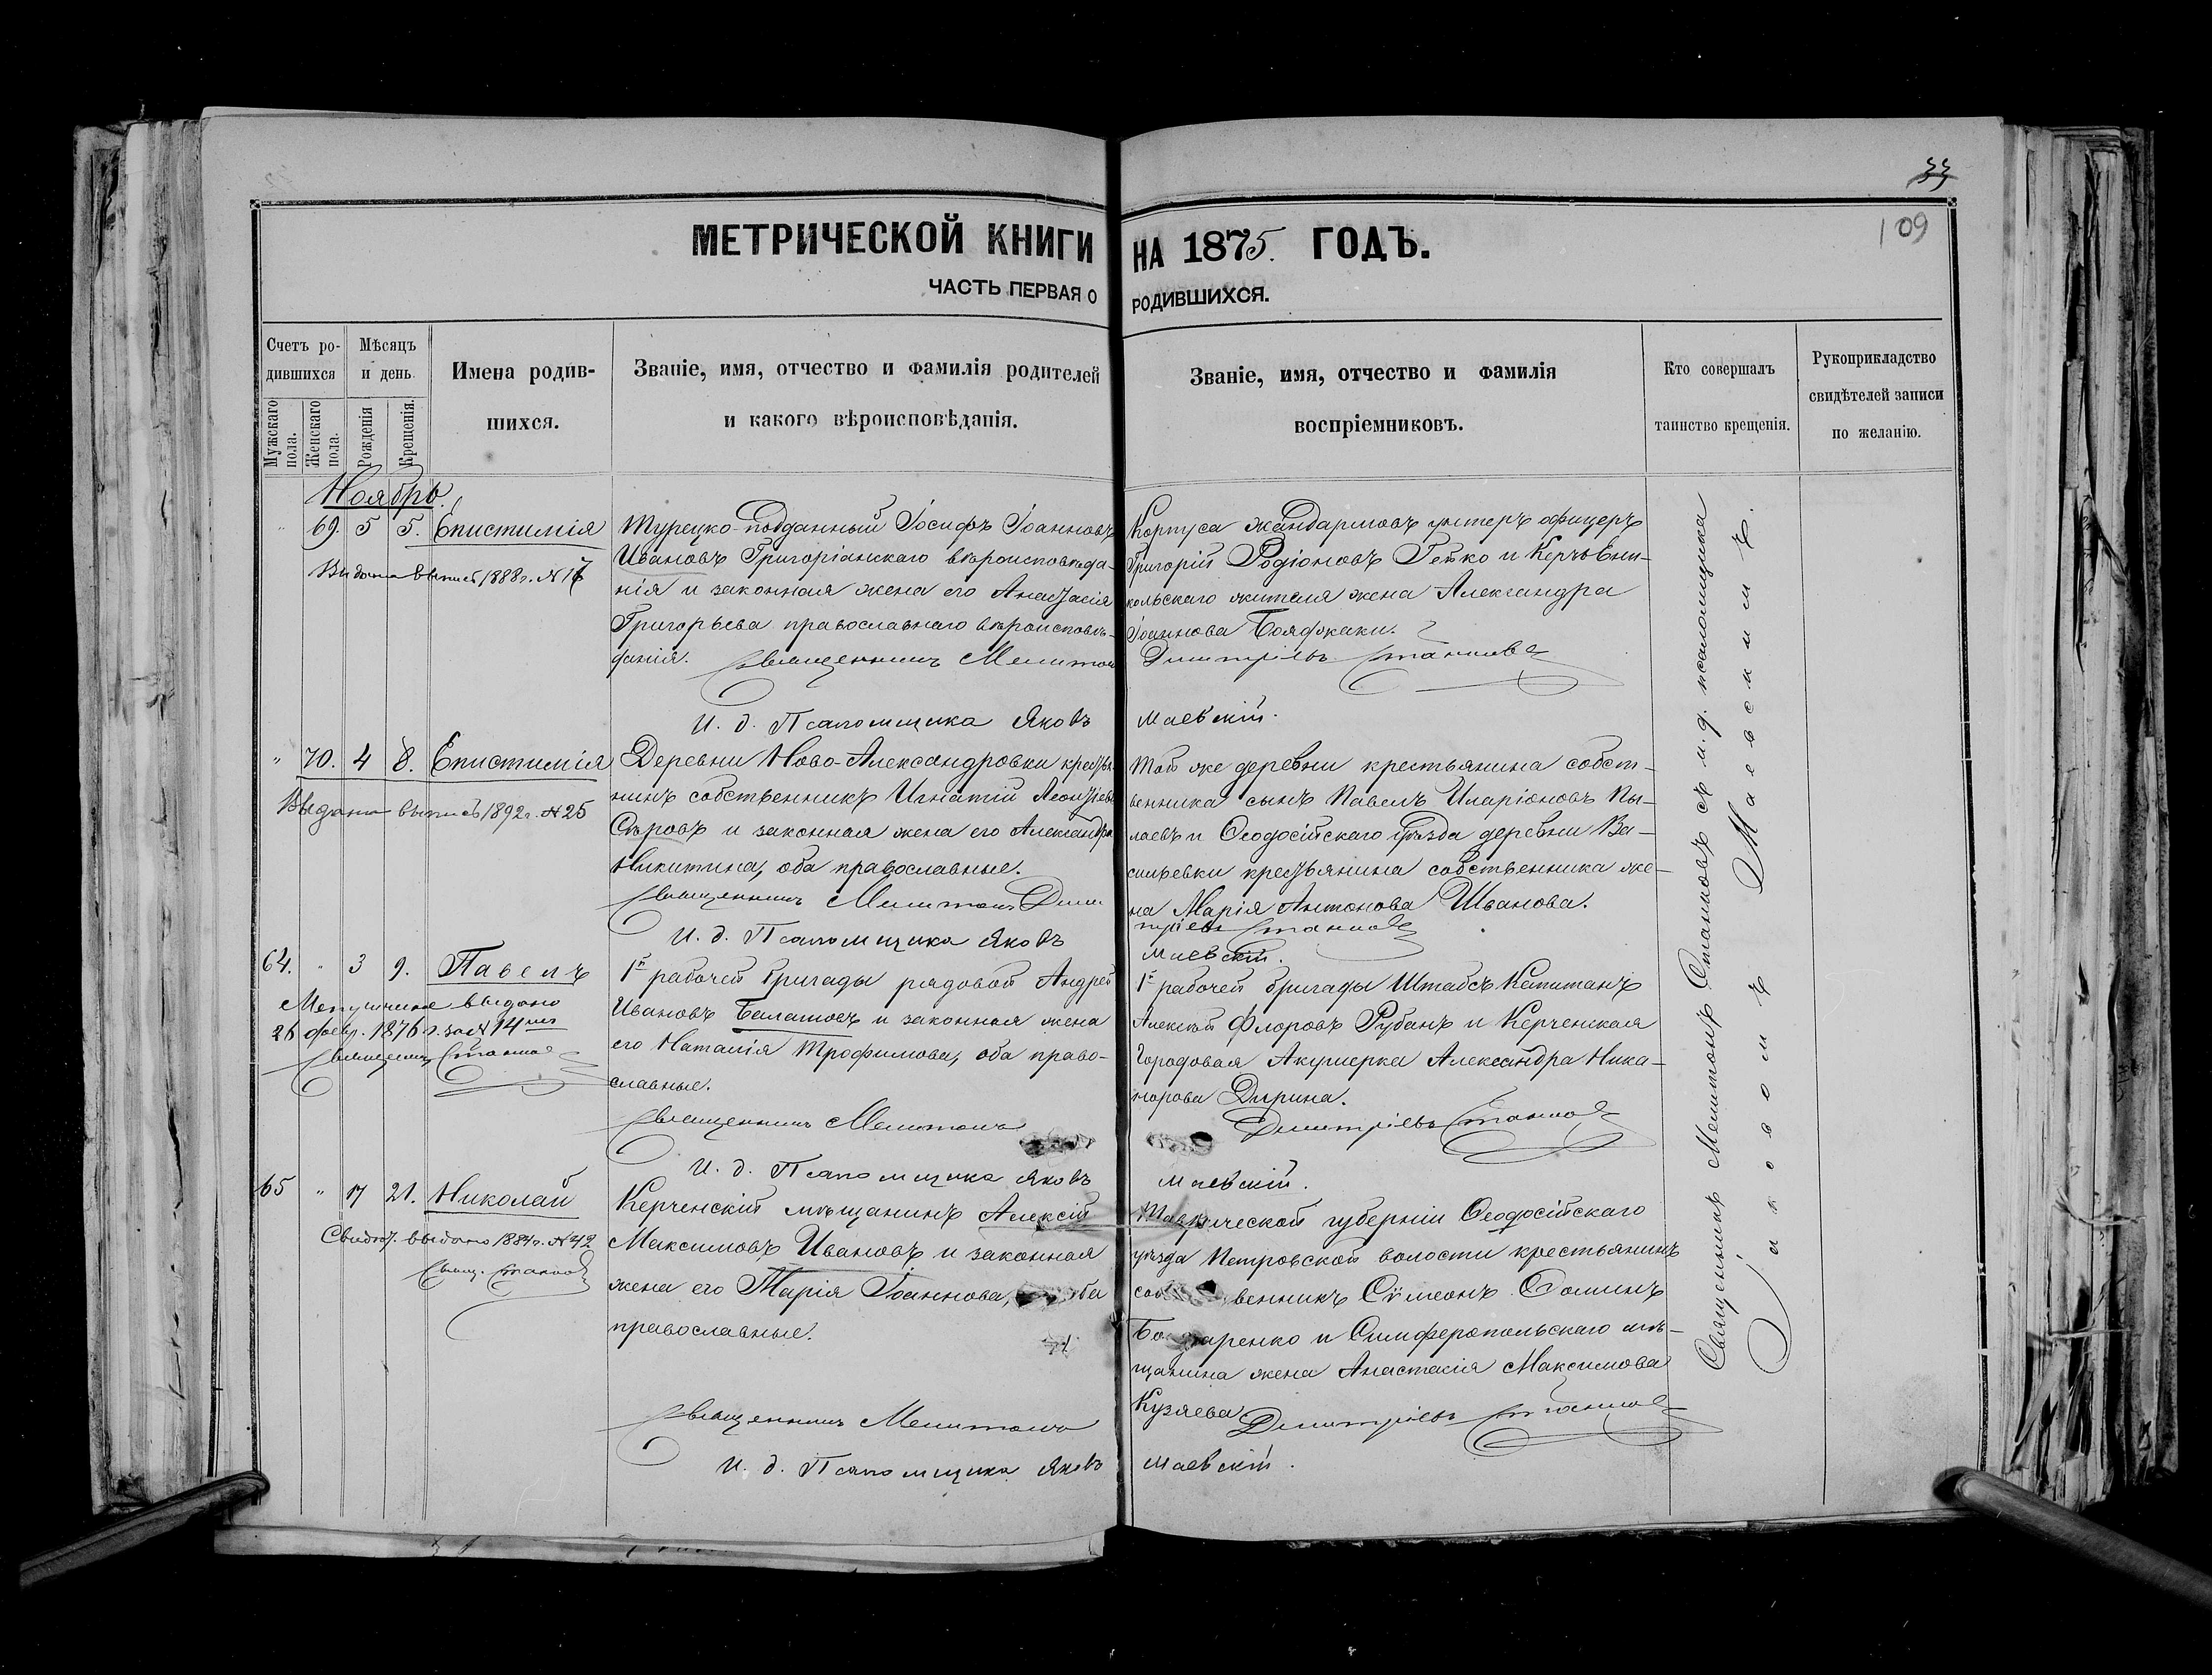 33
109
МЕТРИЧЕСКОЙ КНИГИ НА 1875. ГОДЪ.
ЧАСТЬ ПЕРВАЯ О РОДИВШИХСЯ.
Счетъ ро-
дившихся
Мужскаго пола.
Женскаго пола.
Мѣсяцъ
и день.
Рожденія
Крещенія.
Имена родив-
шихся.
Званіе, имя, отчество и фамилія родителей
и какого вѣроисповѣданія.
Званіе, имя, отчество и фамилія
воспріемниковъ.
Кто совершалъ
таинство крещенія.
Рукоприкладство
свидѣтелей записи
по желанію.
Ноябрь.
" 69. 5 5. Епистимія
Выдана выпись 1888 г. №
Турецко-подданный Іосифъ Іоанновъ
Ивановъ Григоріанскаго вѣроисповѣда-
нія и законная жена его Анастасія
Григорьева православнаго вѣроисповѣ-
данія. Священникъ Мелитонъ
И. д. Псаломщика Яковъ
Корпуса жандармовъ унтеръ офицеръ
Григорій Родіоновъ Гетко и Керчь-Ени-
кольскаго жителя жена Александра
Іоаннова
Димитріевъ Станковъ
Маевскій.
" 70. 4 8. Епистимія
Выдана выпись 1892 г. № 25
Деревни Ново-Александровки крестья-
нинъ собственникъ Игнатій Леонтіевъ
Сѣровъ и законная жена его Александра
Никитина, оба православные.
Священникъ Мелитонъ Дими
И. д. Псаломщика Яковъ
Той же деревни крестьянина собст-
венника сынъ Павелъ Иларіоновъ Пы-
лаевъ и Ѳеодосійскаго уѣзда деревни Ва-
сильевки крестьянина собственника же-
на Марія Антонова Иванова.
тріевъ Станковъ
Маевскій.
64. " 3 9. Павелъ
Метрическая выдано
26 февр. 1876 г. за № 14
Священникъ Станковъ
1й рабочей бригады рядовой Андрей
Ивановъ Балашовъ и законная жена
его Наталія Трофимова, оба право-
славные.
Священникъ Мелитонъ
И. д. Псаломщика Яковъ
1й рабочей бригады Штабсъ Капитанъ
Алексѣй Флоровъ Рубанъ и Керченская
Городовая Акушерка Александра Ника-
норова Дырина.
Димитріевъ Станковъ
Маевскій.
65 " 17 21. Николай
Свидѣт. выдано 1884 г. № 42
Свящ. Станковъ
Керченскій мѣщанинъ Алексій
Максимовъ Ивановъ и законная
жена его Марія Іоаннова, оба
православные.
Священникъ Мелитонъ
И. д. Псаломщика Яковъ
Таврической губерніи Ѳеодосійскаго
уѣзда Петровской волости крестьянинъ
соб венникъ Сѵмеонъ Ѳоминъ
Бо аренко и Симферопольскаго мѣ-
щанина жена Анастасія Максимова
Кузяева Димитріевъ Станковъ
Маевскій.
Священникъ Мелитонъ Станковъ съ и. д. псаломщика
Яковомъ Маевскимъ.